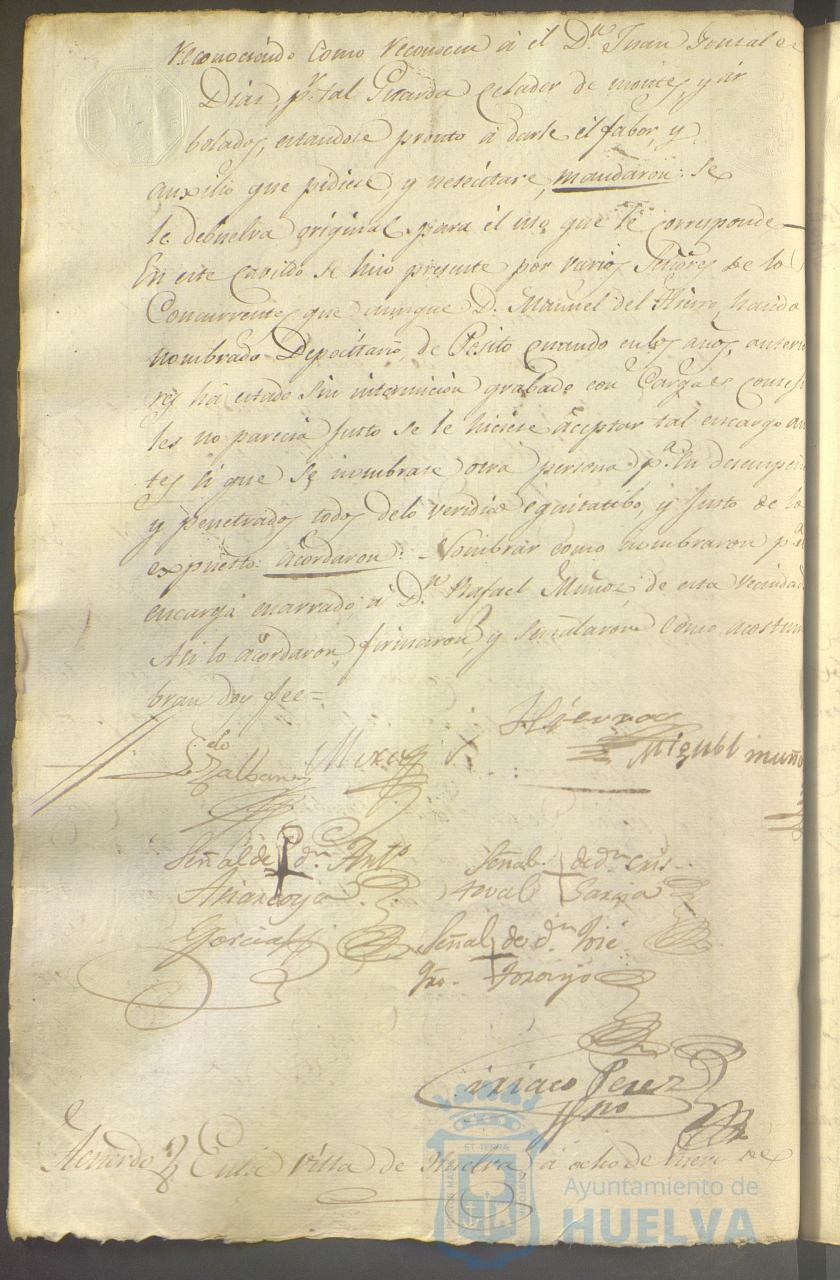 reconociendo como reconocen à el D.n Juan Gonzalez
Dias p.r tal Guarda celador de montes, y ar
bolados, estandose pronto à darle el fabor, y
auxilio que pidiese, y nesesitare, mandaron: se
le debuelva original para el uso que le corresponde
En este Cavildo se hiso presente por varios Señores de los
Concurrentes que aunque D. Manuel del Hierro, ha sido
nombrado Depocitario de Posito quando en los años anterio
res ha estado sin intermicion grabado con Cargos consesi
les no parecia justo se le hiciese aceptar tal encargo an
tes si que se nombrase otra persona p.a su desempeño
y penetrados todos de lo veridico equitatibo, y justo de lo
expuesto: acordaron: Nombrar como nombraron p.a el
encargo enarrado à D.n Rafael Muñoz de esta Vecindad
Asi lo acordaron, firmaron, y señalaron como acostum
bran doy fee=
Hierro
Miguel muño
Señal de d.n Ant.o
Señal de d.n Cris-
toval Garcia
Garcia
Señal de d.n José
Toronjo
Ciriaco Perez
Acuerdo En la Villa de Huelva, à ocho de Enero de
Ayuntamiento de
HUELVA